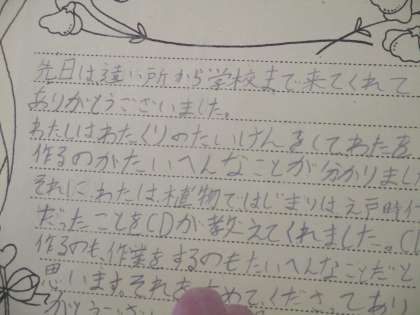 先日は遠い所から学校まで来てくれて
ありがとうございました。
わたしはわたくりのたいけんをしてわたを
作るのがたいへんなことが分かりまし
それにわたは植物ではじまりは江戸時代
だったことをCDが教えてくれました。C
作るのも、作業をするのもたいへんなことだと
思います。それを ためてくださってあり
がとうござい